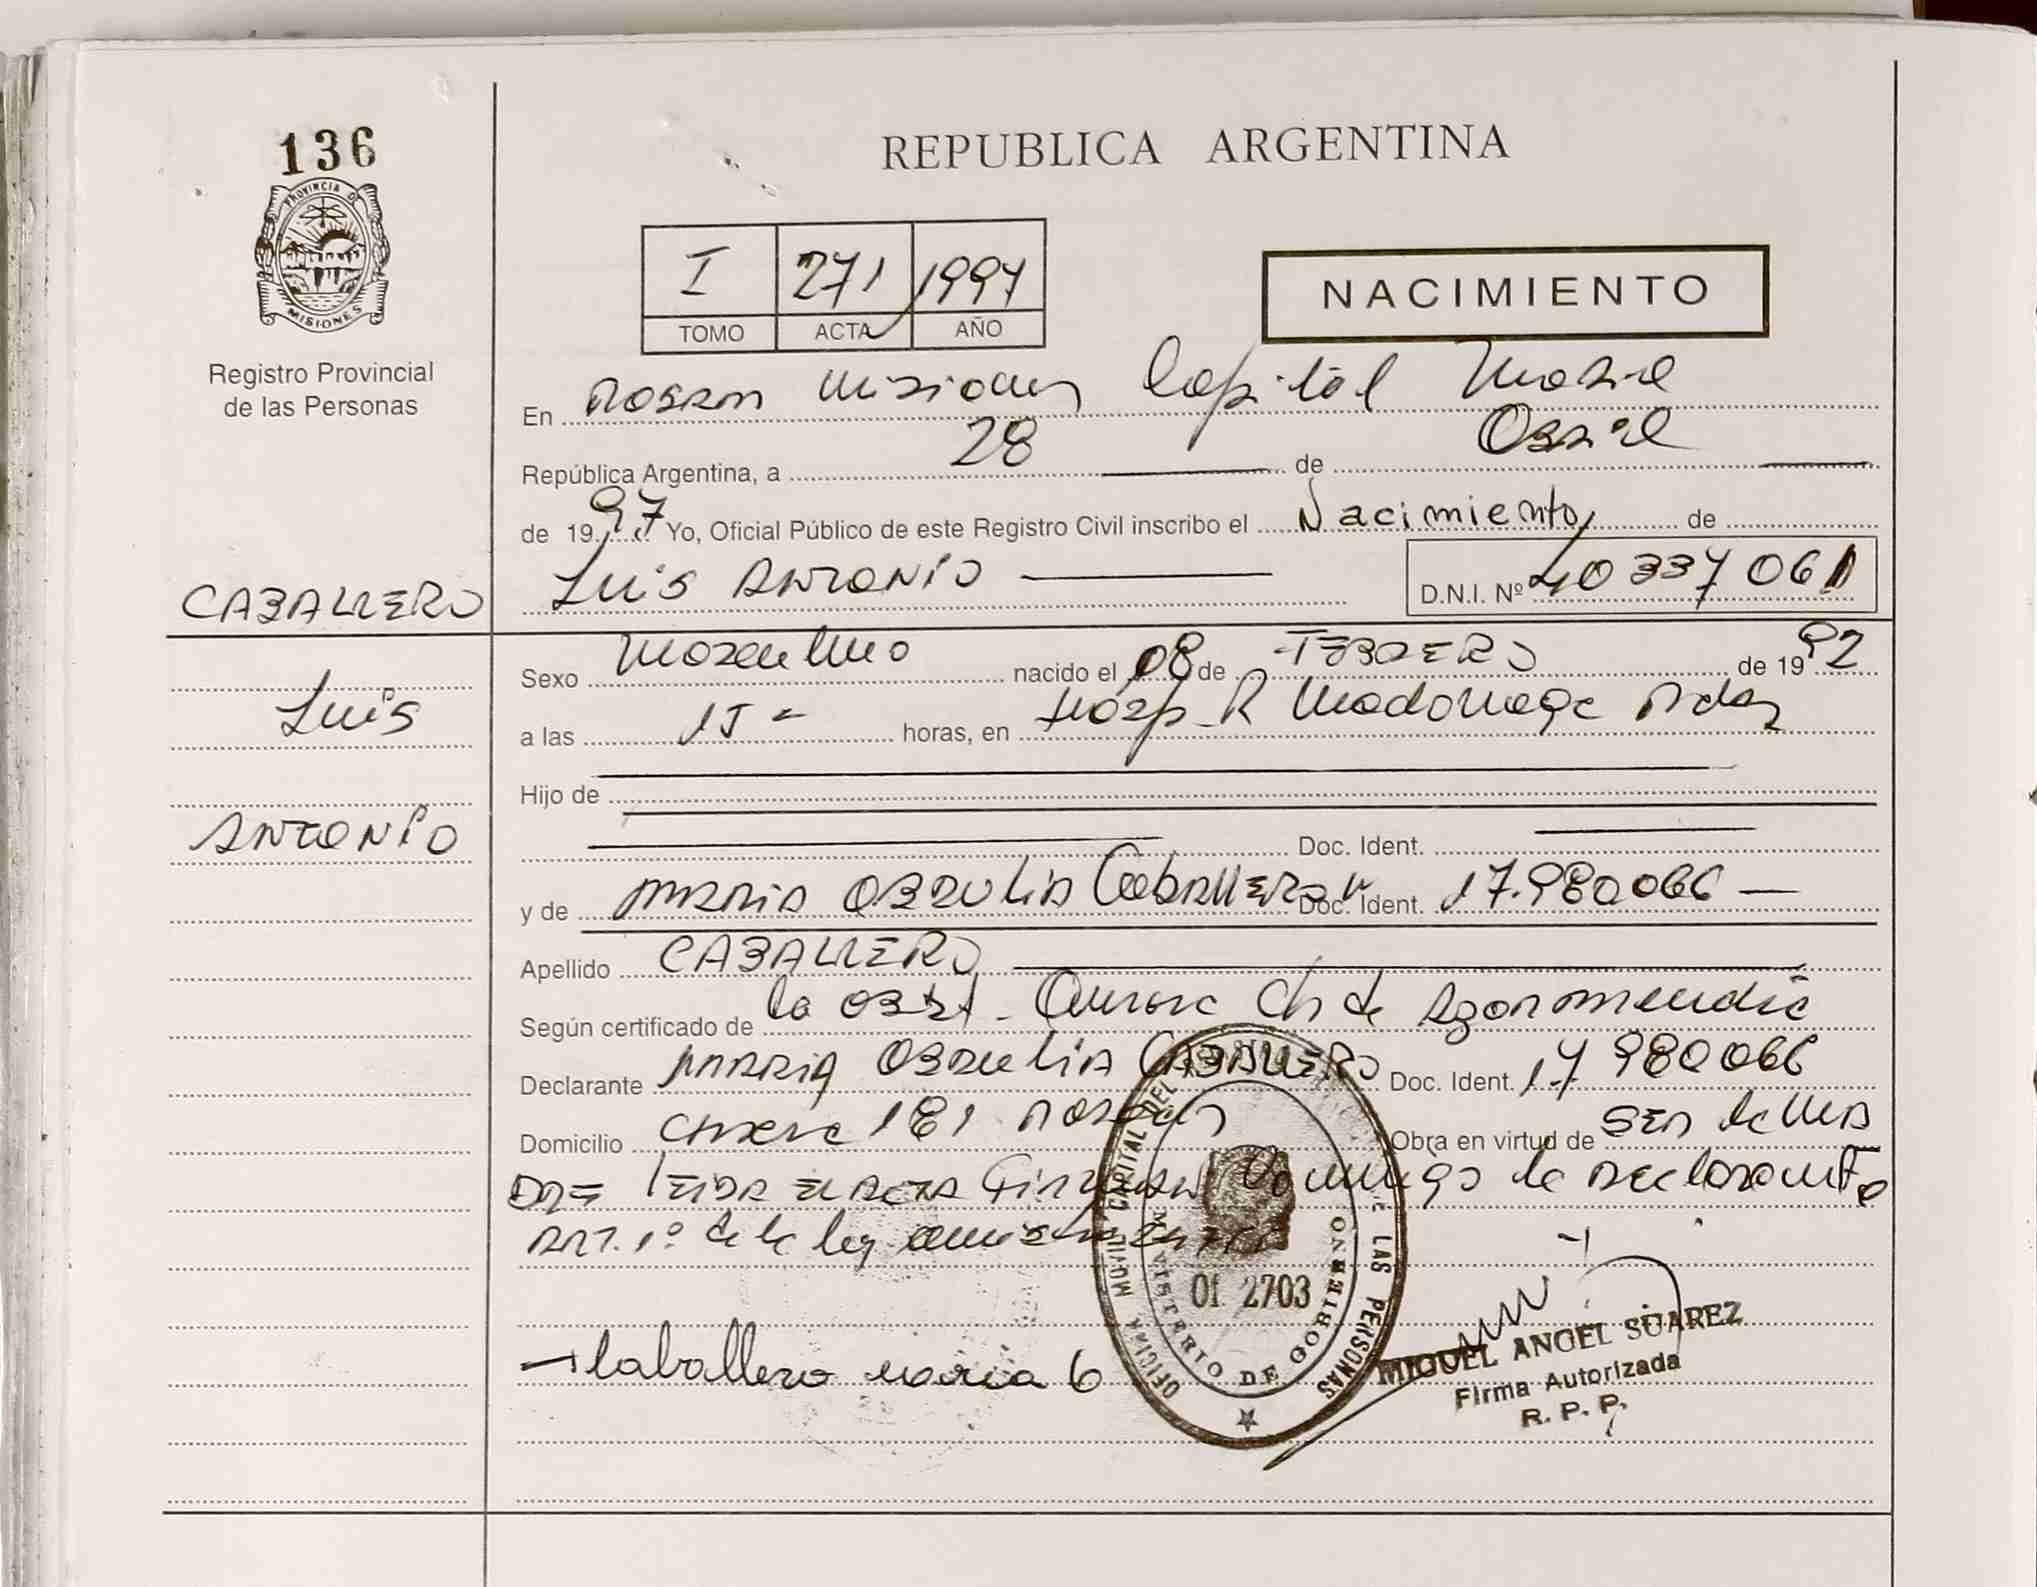 136
PROVINCIA D
MISIONES
Registro Provincial
de las Personas
CABALLERO
Luis
ANTONIO
REPUBLICA ARGENTINA
I 271 1997
TOMO ACTA AÑO
NACIMIENTO
En Posadas Misiones Capital
República Argentina, a 28 de Abril
de 1997 Yo, Oficial Público de este Registro Civil inscribo el Nacimiento de
Luis ANTONIO D.N.I. Nº 40 337 061
Sexo Masculino nacido el 08 de FEBRERO de 1992
a las 15 horas, en Hosp R Madariaga Pdas
Hijo de
Doc. Ident.
y de MARIA OBDULIA CABALLERO Doc. Ident. 17.980066
Apellido CABALLERO
Según certificado de la Obst. Aurora Ch de
Declarante MARIA OBDULIA CABALLERO Doc. Ident. 17 980066
Domicilio 181 Posadas Obra en virtud de SER la MA
DRE LEIDA EL ACTA FIRMAN conmigo la declarante
ART. 1º de la ley
Caballero maria
OFICINA MOVIL CAPITAL DEL REGISTRO DE LAS PERSONAS
MINISTERIO DE GOBIERNO
Of 2703
MIGUEL ANGEL SUAREZ
Firma Autorizada
R. P. P.